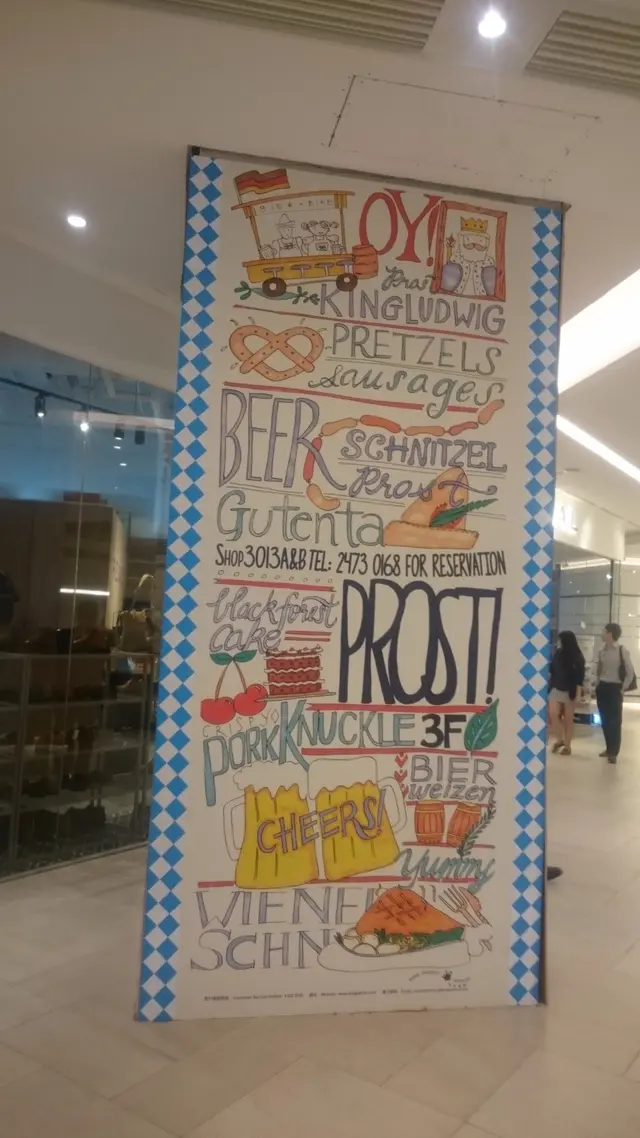 OY!
Prost
KINGLUDWIG
PRETZELS
sausages
BEER
SCHNITZEL
Prost
Gutenta
SHOP 3013A&B TEL: 2473 0168 FOR RESERVATION
blackforest
cake
PROST!
PORK KNUCKLE 3F
BIER
weizen
CHEERS!
Yummy
WIENER
SCHN